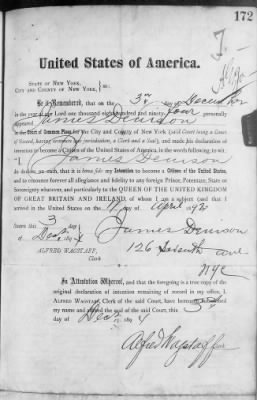 172
United States of America.
STATE OF NEW YORK,
CITY AND COUNTY OF NEW YORK, } ss:
Be it Remembered, that on the 3rd day of December
in the year of our Lord one thousand eight hundred and ninety-four personally
appeared James Denison
in the Court of Common Pleas for the City and County of New York (said Court being a Court
of Record, having common law jurisdiction, a Clerk and a Seal), and made his declaration
of intention to become a Citizen of the United States of America, in the words following, to wit:
I James Denison
do declare, on oath, that it is bona fide my Intention to become a Citizen of the United States,
and to renounce forever all allegiance and fidelity to any foreign Prince, Potentate, State or
Sovereignty whatever, and particularly to the QUEEN OF THE UNITED KINGDOM
OF GREAT BRITAIN AND IRELAND, of whom I am a subject (and that I
arrived in the United States on the April 92
Sworn this 3
day of Dec 1894 James Denison
ALFRED WAGSTAFF, 126 Seventh ave
Clerk
NYC
In Attestation Whereof, and that the foregoing is a true copy of the
original declaration of intention remaining of record in my office, I,
ALFRED WAGSTAFF, Clerk of the said Court, have hereunto subscribed
my name and affixed the seal of the said Court, this 3rd
day of Dec 1894
Alfred Wagstaff Clerk